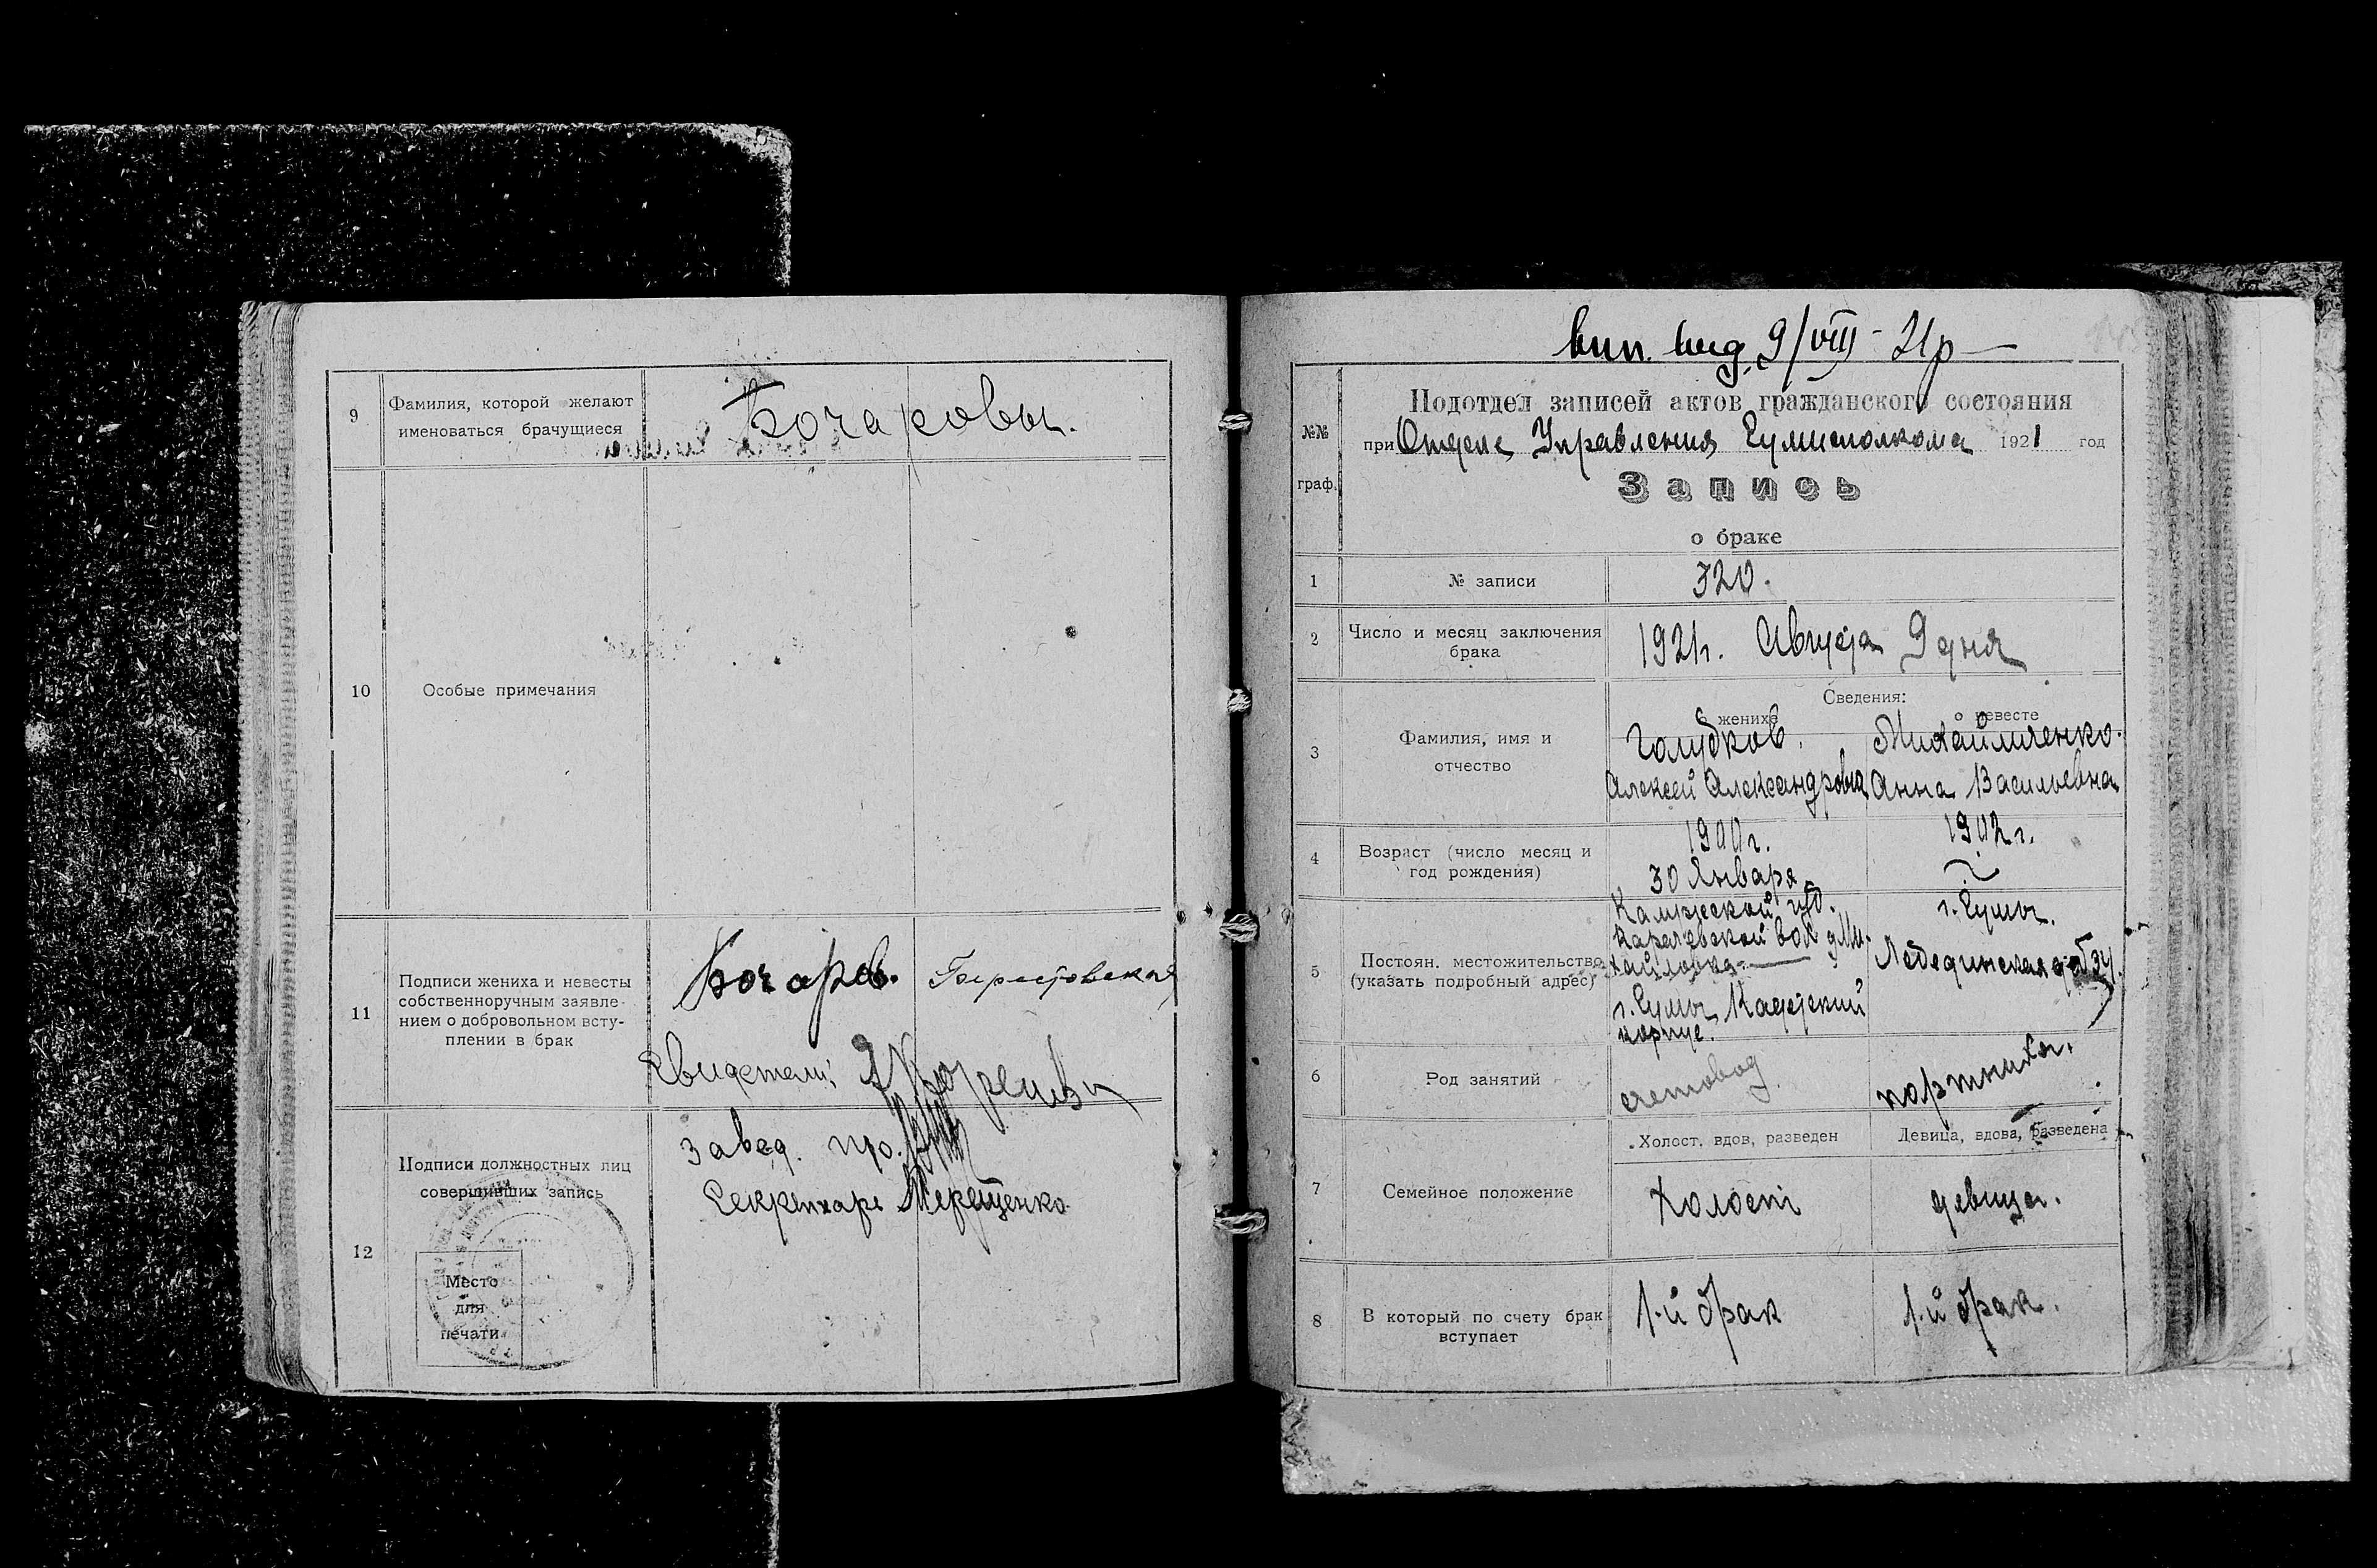 9
Фамилия, которой желают
именоваться брачущиеся
Бочаровы.
10
Особые примечания
11
Подписи жениха и невесты
собственноручным заявле-
нием о добровольном всту-
плении в брак
Бочаров.
Свидетели:
12
Подписи должностных лиц
совершивших запись
завед.
Секретарь Терещенко
Место
для
печати
вып. вид. 9/VIII - 21р
№№
граф.
Подотдел записей актов гражданского состояния
при Отделе Управления Сумисполкома 1921 год
Запись
о браке
1
№ записи
320.
2
Число и месяц заключения
брака
1921г. Августа 9 дня
Сведения:
о женихе
о невесте
3
Фамилия, имя и
отчество
Голубков.
Алексей Александрович
Михайличенко.
Анна Васильевна
4
Возраст (число месяц и
год рождения)
1900г.
30 Января
1902 г.
5
Постоян. местожительство
(указать подробный адрес)
губ.
вол. д. Ми-
хайловка
г. Сумы Кадетский
корпус.
г. Сумы.
Лебединская
6
Род занятий
счетовод
портниха.
7
Семейное положение
Холост. вдов, разведен
Девица, вдова, разведена
Холост
девица.
8
В который по счету брак
вступает
1-й брак
1-й брак.